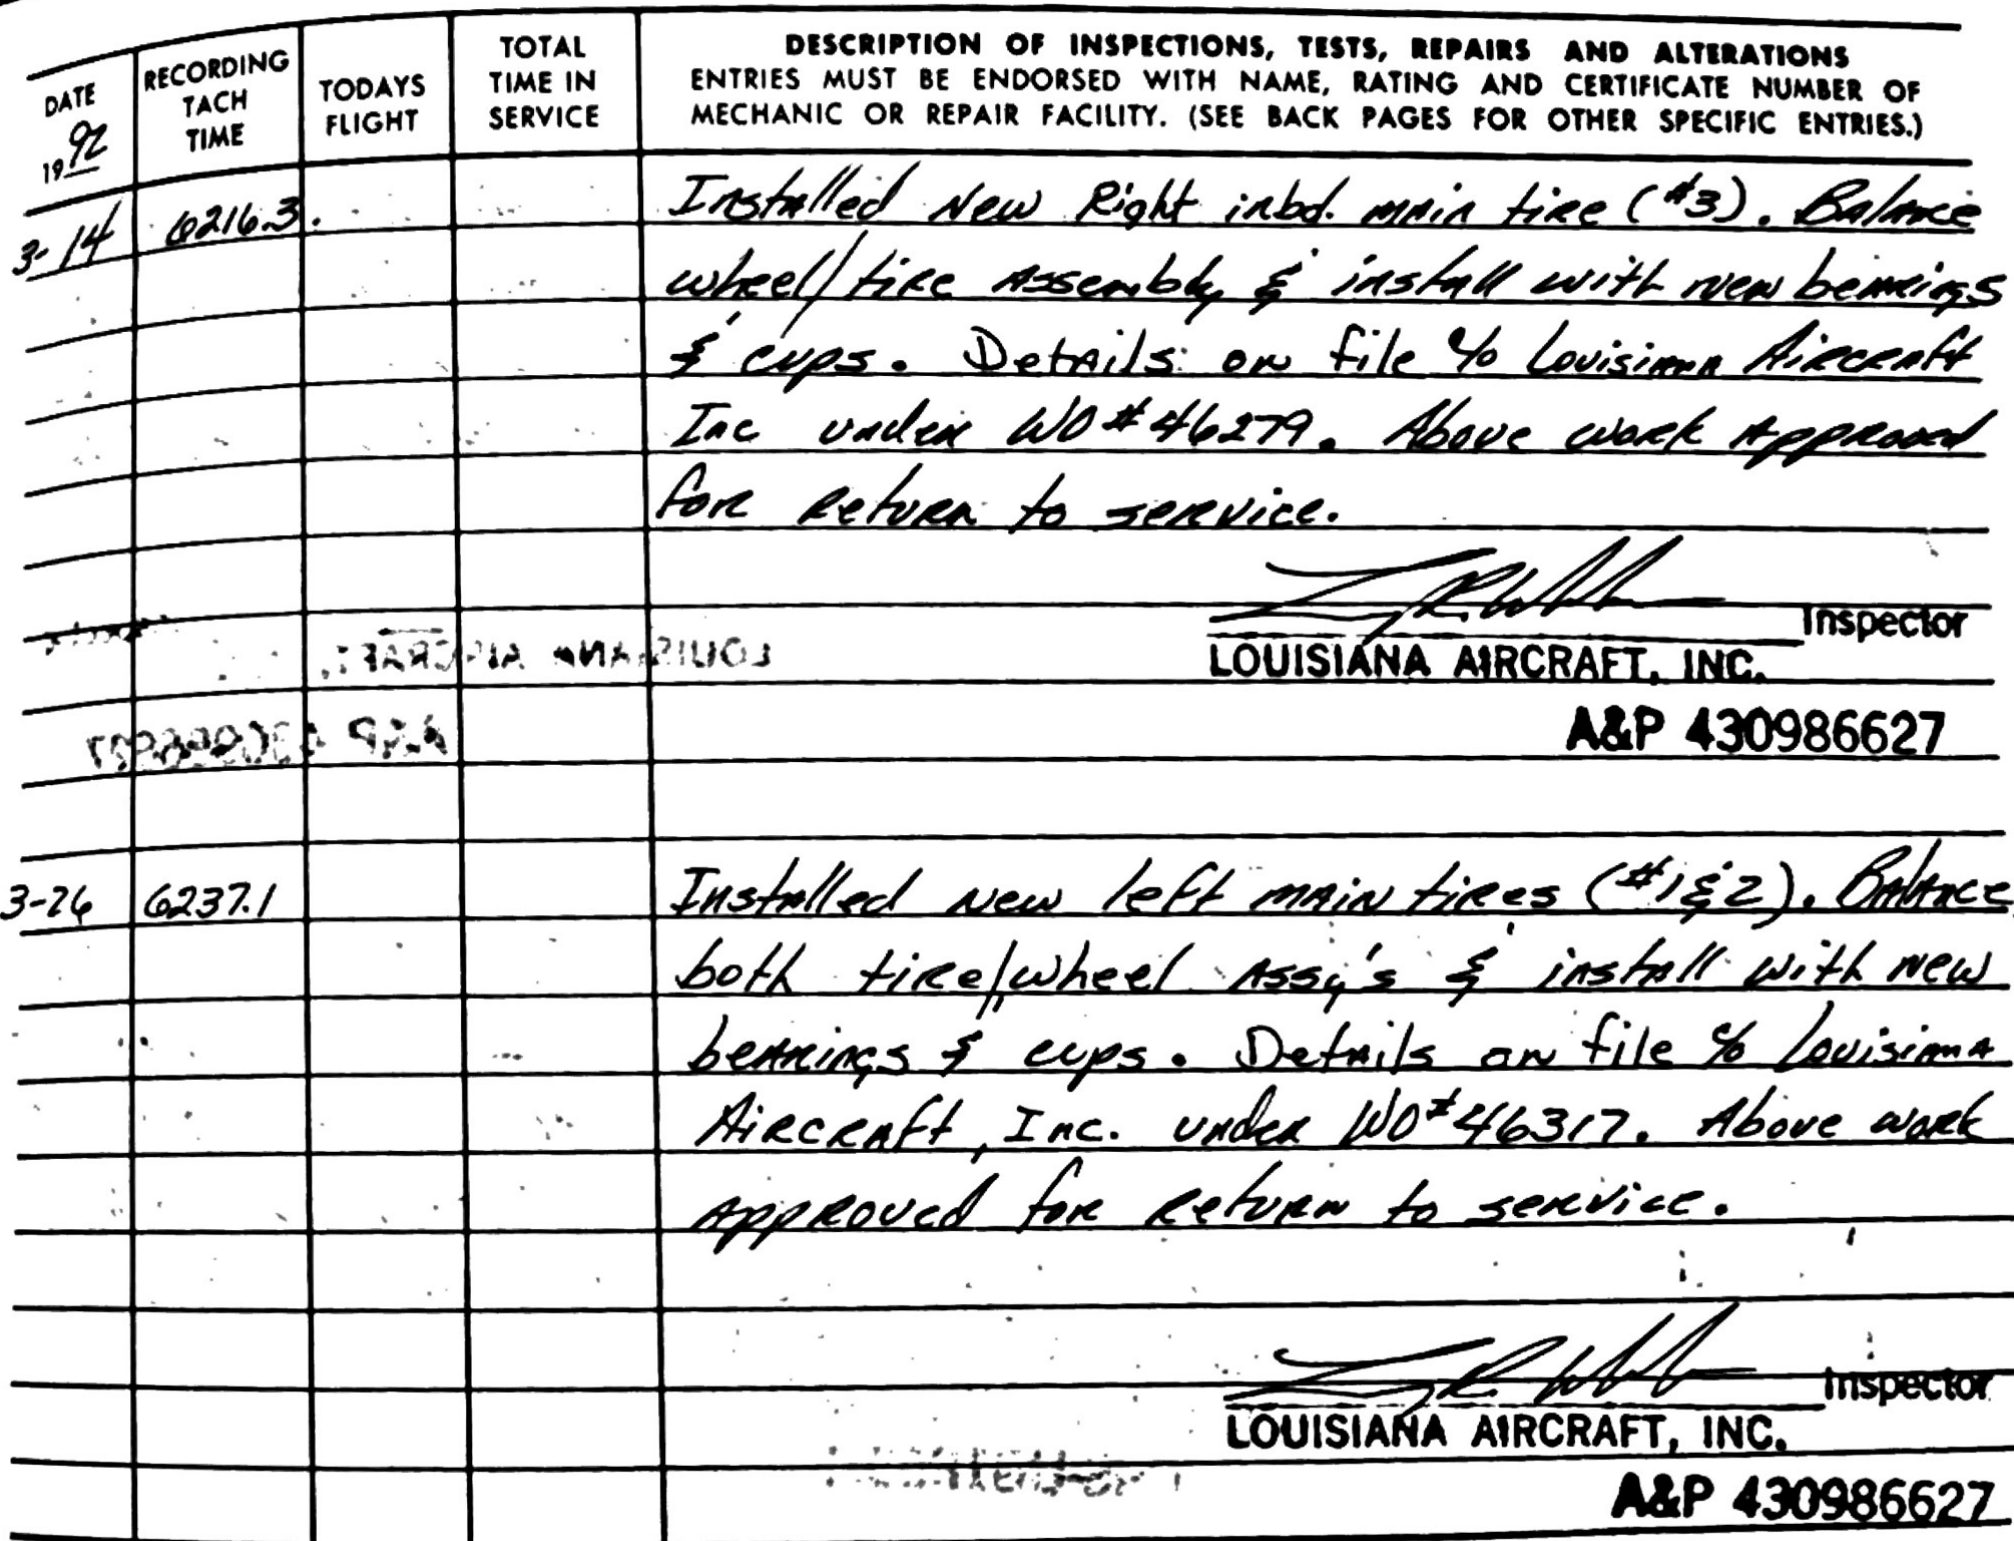 DATE
1992
RECORDING
TACH
TIME
TODAYS
FLIGHT
TOTAL
TIME IN
SERVICE
DESCRIPTION OF INSPECTIONS, TESTS, REPAIRS AND ALTERATIONS
ENTRIES MUST BE ENDORSED WITH NAME, RATING AND CERTIFICATE NUMBER OF
MECHANIC OR REPAIR FACILITY. (SEE BACK PAGES FOR OTHER SPECIFIC ENTRIES.)
3-14 6216.3 Installed New Right inbd. main tire (#3). Balance
wheel/tire Assembly & install with new bearings
& cups. Details on file c/o Louisiana Aircraft
Inc under WO#46279. Above work Approved
for return to service.
Inspector
LOUISIANA AIRCRAFT, INC.
LOUISIANA AIRCRAFT,
A&P 430986627
A&P 430986627
3-26 6237.1 Installed New left main tires (#1&2). Balance
both tire/wheel Assy's & install with new
bearings & cups. Details on file c/o Louisiana
Aircraft, Inc. under WO#46317. Above work
Approved for return to service.
Inspector
LOUISIANA AIRCRAFT, INC.
A&P 430986627